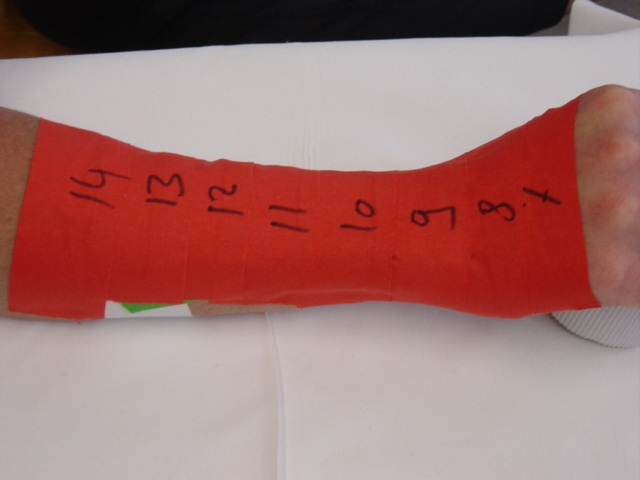 14
13
12
11
10
9
8
7